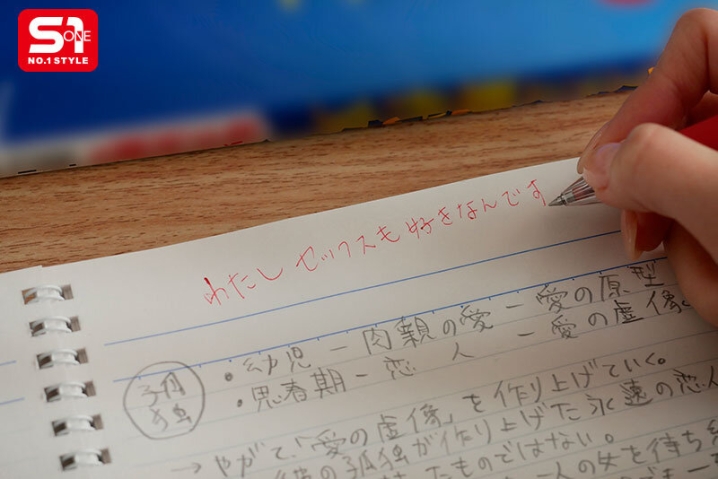 S1
ONE
NO.1 STYLE
わたしセックスも好きなんです
孤独
・幼児－肉親の愛－愛の原型
・思春期－恋人－愛の虚像。
→やがて「愛の虚像」を作り上げていく。
の孤独が作り上げた永遠の恋人
たものではない。
人の女を待ち